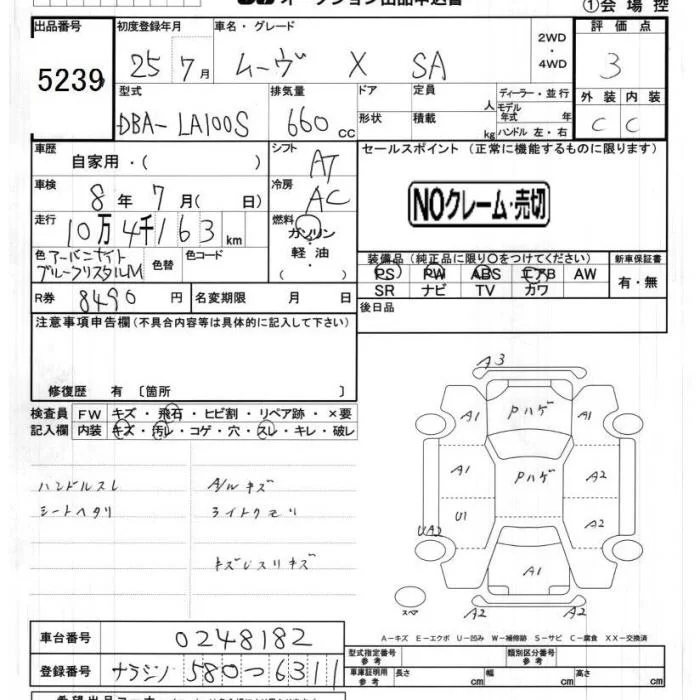 ①会場控
出品番号 初度登録年月 車名・グレード 評価点
5239
25 7月 ムーヴ X SA 2WD・4WD 3
型式 排気量 ドア 定員 人 ディーラー・並行 外装 内装
DBA-LA100S 660cc 形状 積載 kg モデル年式 年 ハンドル 左・右 C C
車歴 自家用・( ) シフト AT セールスポイント (正常に機能するものに限ります)
車検 8年 7月( 日) 冷房 AC
NOクレーム・売切
走行 10万4千163km 燃料 ガソリン・軽油・( )
色 アーバンナイトブルークリスタルM 色替 色コード
装備品 (純正品に限り〇をつけてください) 新車保証書
PS PW ABS エアB AW 有・無
SR ナビ TV カワ
R券 8490円 名変期限 月 日 後日品
注意事項申告欄 (不具合内容等は具体的に記入して下さい)
修復歴 有 〔箇所 〕
検査員 FW キズ・飛石・ヒビ割・リペア跡・×要
記入欄 内装 キズ・汚レ・コゲ・穴・スレ・キレ・破レ
ハンドルスレ A/Wキズ
シートヘタリ ライトクモリ
キズヒスリキズ
A3
A1 Pハゲ A1
A1 Pハゲ A2
U1 A2
UA2
A1
スペア A2 A2
A-キズ E-エクボ U-凹み W-補修跡 S-サビ C-腐食 XX-交換済
車台番号 0248182
型式指定番号 参考 類別区分番号 参考
登録番号 ナラシノ 580 つ 6311
車庫証明用 参考 長さ cm 幅 cm 高さ cm